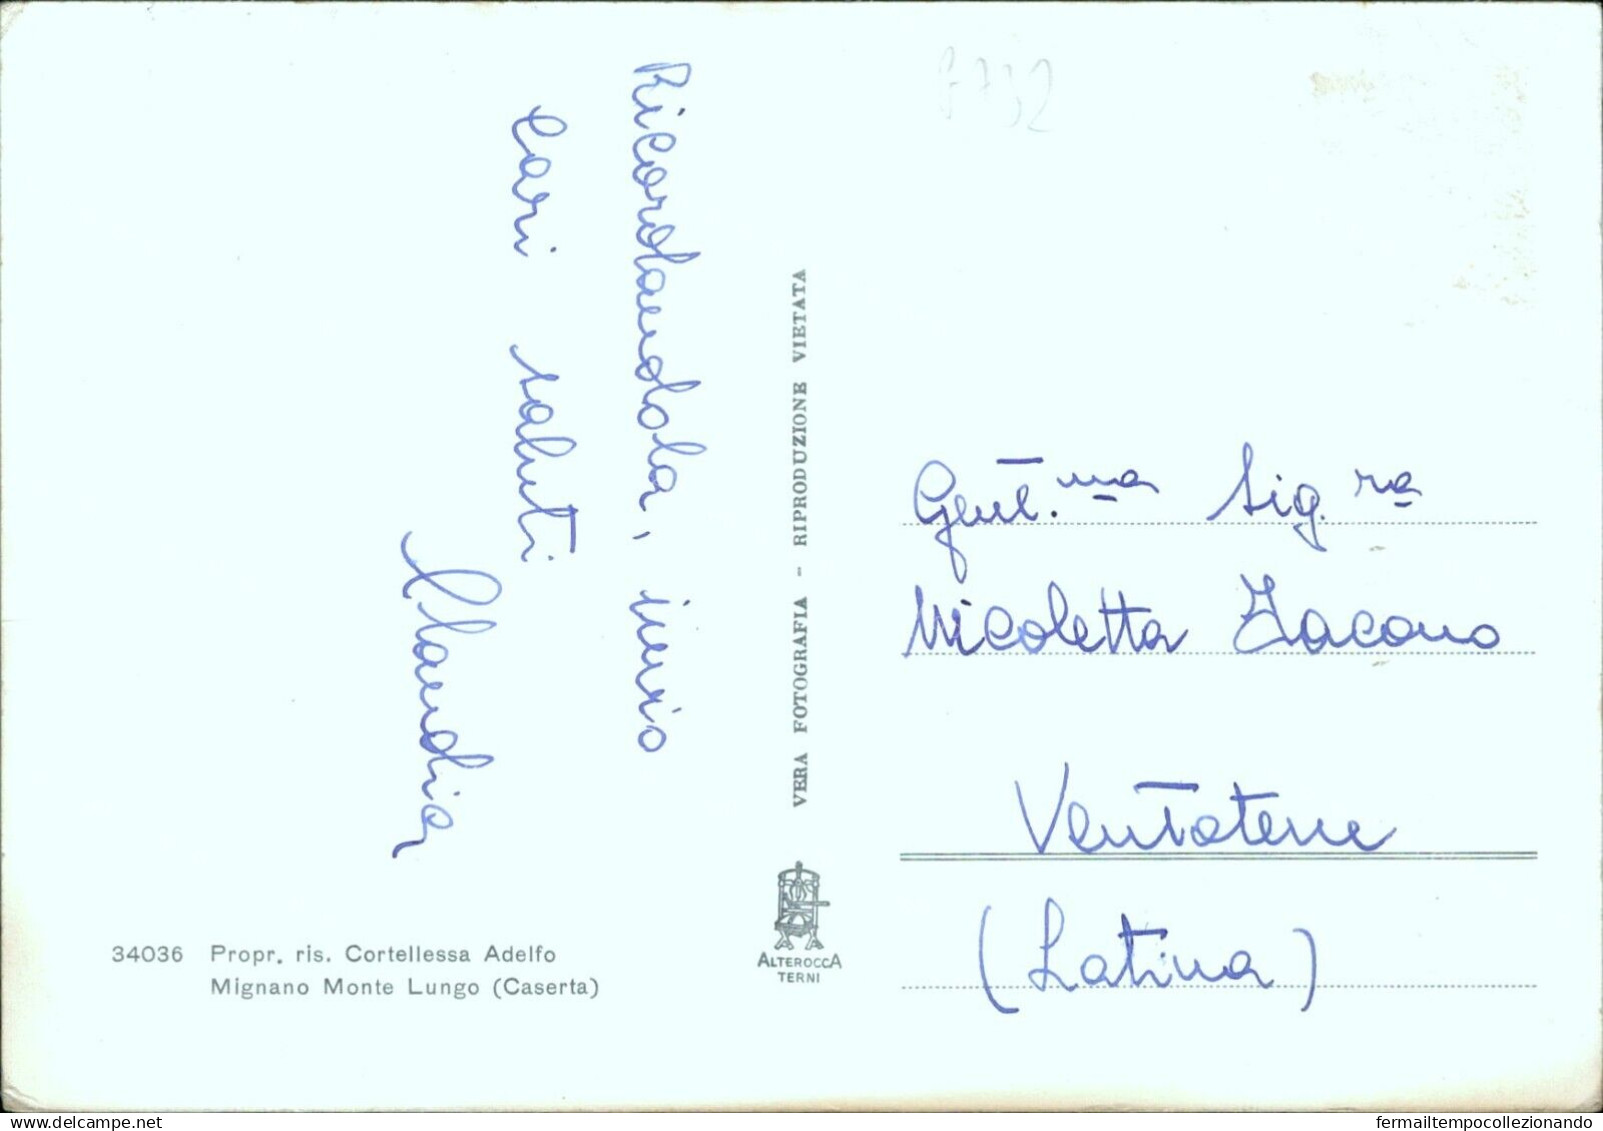 Ricordandola, invio
cari saluti
Claudia
VERA FOTOGRAFIA - RIPRODUZIONE VIETATA
Gent.ma Sig.ra
Nicoletta Iacono
Ventotene
(Latina)
34036 Propr. ris. Cortellessa Adelfo
Mignano Monte Lungo (Caserta)
ALTEROCCA
TERNI
delcampe.net
fermailtempocollezionando